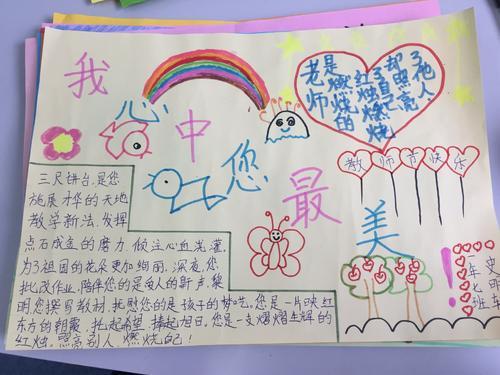 我心中您最美
老师
是燃烧的
红烛燃烧
了自己
却照亮
了他人
教师节快乐
三尺讲台,是您
施展才华的天地
教学新法,发挥
点石成金的魔力,倾注心血浇灌,
为了祖国的花朵更加绚丽,深夜,您
批改作业,陪伴您的是
明,您撰写教材,抚慰您的是孩子的梦呓,您是一片映红
东方的朝霞,托起希望,捧起旭日,您是一支熠熠生辉的
红烛,照亮别人,燃烧自己!
一年七班
史